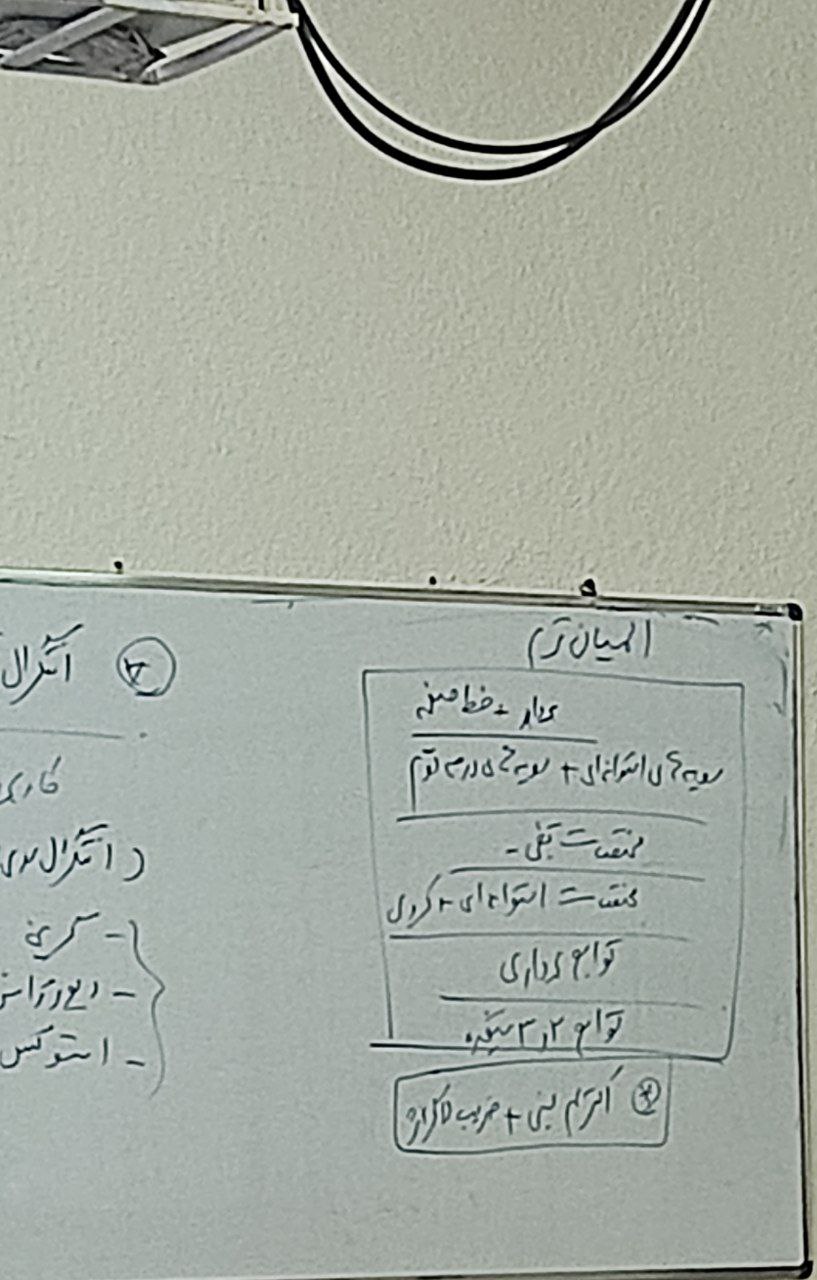 المیان ترم
بردار + خط و صفحه
رویه های استوانه ای + رویه های درجه دوم
مختصات قطبی -
مختصات استوانه ای + کروی
توابع برداری
توابع ۲ و ۳ متغیره
* اکسترمم یابی + ضریب لاگرانژ
۲ انتگرال
انتگرال روی
- گرین
- دیورژانس
- استوکس